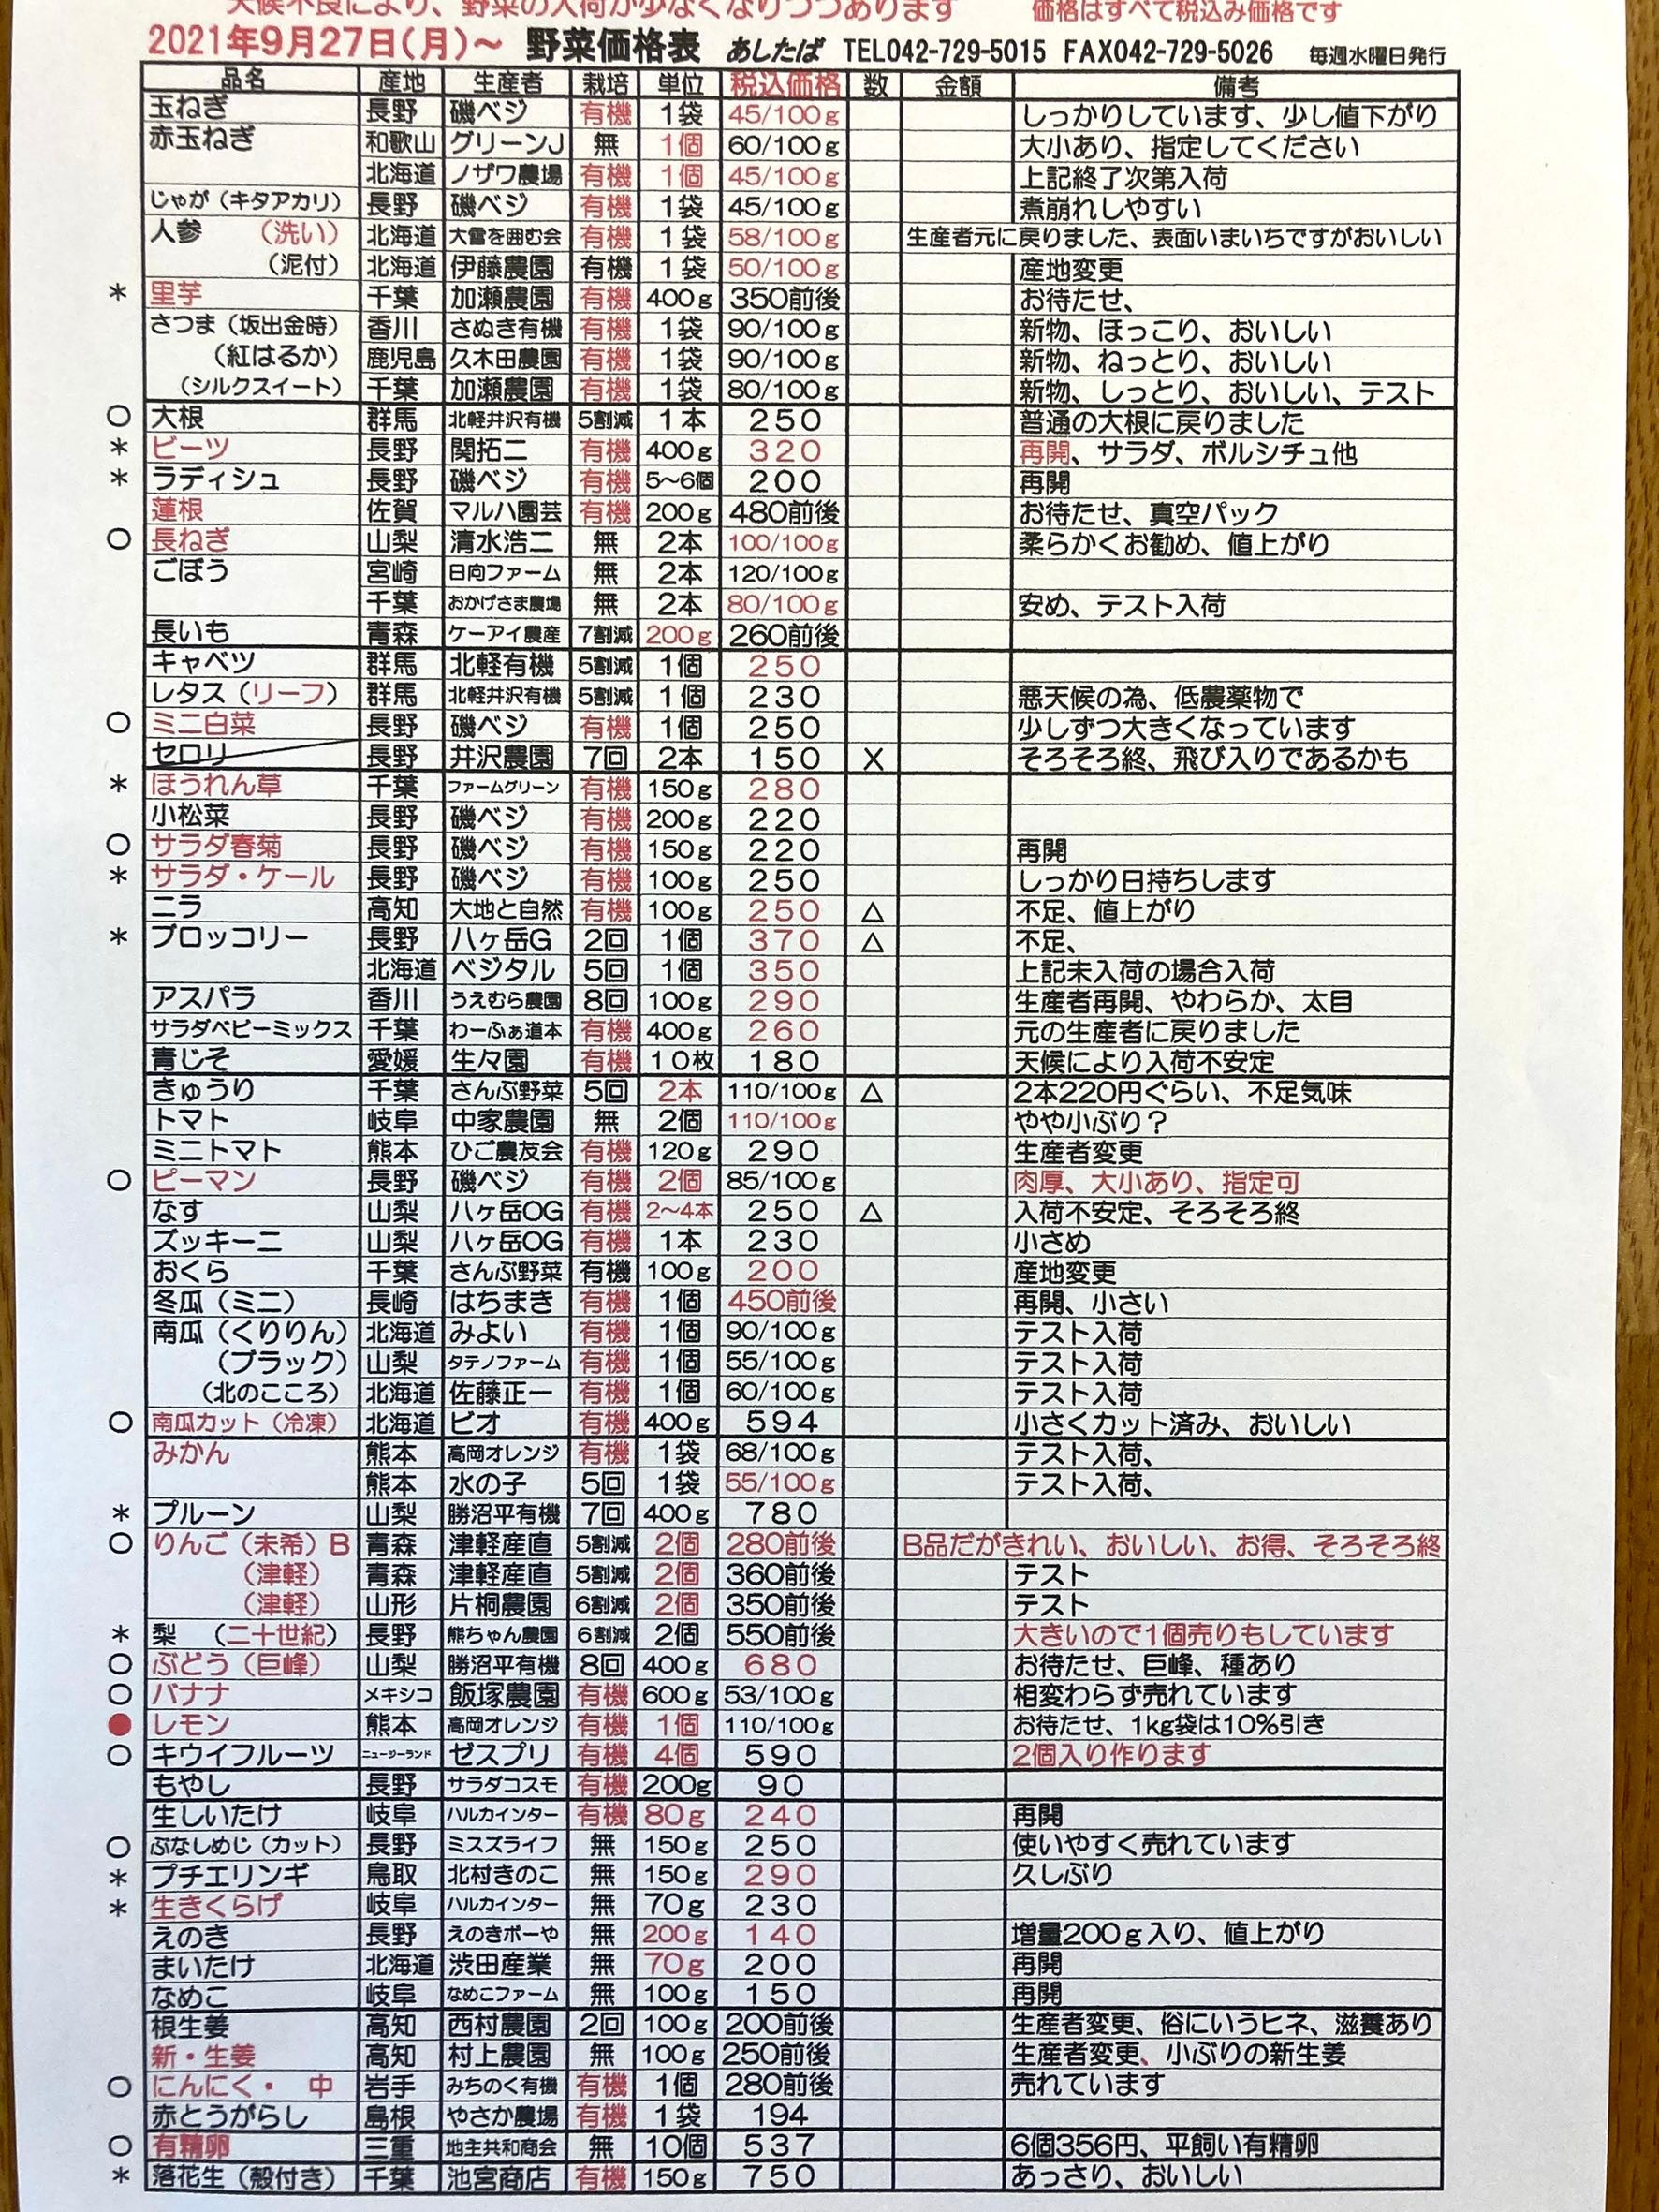 天候不良により、野菜の入荷が少なくなりつつあります 価格はすべて税込み価格です
2021年9月27日(月)～ 野菜価格表 あしたば TEL042-729-5015 FAX042-729-5026 毎週水曜日発行
品名 産地 生産者 栽培 単位 税込価格 数 金額 備考
玉ねぎ 長野 磯ベジ 有機 1袋 45/100g しっかりしています、少し値下がり
赤玉ねぎ 和歌山 グリーンJ 無 1個 60/100g 大小あり、指定してください
北海道 ノザワ農場 有機 1個 45/100g 上記終了次第入荷
じゃが（キタアカリ） 長野 磯ベジ 有機 1袋 45/100g 煮崩れしやすい
人参 （洗い） 北海道 大雪を囲む会 有機 1袋 58/100g 生産者元に戻りました、表面いまいちですがおいしい
（泥付） 北海道 伊藤農園 有機 1袋 50/100g 産地変更
* 里芋 千葉 加瀬農園 有機 400g 350前後 お待たせ、
さつま（坂出金時） 香川 さぬき有機 有機 1袋 90/100g 新物、ほっこり、おいしい
（紅はるか） 鹿児島 久木田農園 有機 1袋 90/100g 新物、ねっとり、おいしい
（シルクスイート） 千葉 加瀬農園 有機 1袋 80/100g 新物、しっとり、おいしい、テスト
○ 大根 群馬 北軽井沢有機 5割減 1本 250 普通の大根に戻りました
* ビーツ 長野 関拓二 有機 400g 320 再開、サラダ、ボルシチュ他
* ラディシュ 長野 磯ベジ 有機 5～6個 200 再開
蓮根 佐賀 マルハ園芸 有機 200g 480前後 お待たせ、真空パック
○ 長ねぎ 山梨 清水浩二 無 2本 100/100g 柔らかくお勧め、値上がり
ごぼう 宮崎 日向ファーム 無 2本 120/100g
千葉 おかげさま農場 無 2本 80/100g 安め、テスト入荷
長いも 青森 ケーアイ農産 7割減 200g 260前後
キャベツ 群馬 北軽有機 5割減 1個 250
レタス（リーフ） 群馬 北軽井沢有機 5割減 1個 230 悪天候の為、低農薬物で
○ ミニ白菜 長野 磯ベジ 有機 1個 250 少しずつ大きくなっています
セロリ 長野 井沢農園 7回 2本 150 X そろそろ終、飛び入りであるかも
* ほうれん草 千葉 ファームグリーン 有機 150g 280
小松菜 長野 磯ベジ 有機 200g 220
○ サラダ春菊 長野 磯ベジ 有機 150g 220 再開
* サラダ・ケール 長野 磯ベジ 有機 100g 250 しっかり日持ちします
ニラ 高知 大地と自然 有機 100g 250 △ 不足、値上がり
* ブロッコリー 長野 八ヶ岳G 2回 1個 370 △ 不足、
北海道 ベジタル 5回 1個 350 上記未入荷の場合入荷
アスパラ 香川 うえむら農園 8回 100g 290 生産者再開、やわらか、太目
サラダベビーミックス 千葉 わーふぁ道本 有機 400g 260 元の生産者に戻りました
青じそ 愛媛 生々園 有機 10枚 180 天候により入荷不安定
きゅうり 千葉 さんぶ野菜 5回 2本 110/100g △ 2本220円ぐらい、不足気味
トマト 岐阜 中家農園 無 2個 110/100g やや小ぶり？
ミニトマト 熊本 ひご農友会 有機 120g 290 生産者変更
○ ピーマン 長野 磯ベジ 有機 2個 85/100g 肉厚、大小あり、指定可
なす 山梨 八ヶ岳OG 有機 2～4本 250 △ 入荷不安定、そろそろ終
ズッキーニ 山梨 八ヶ岳OG 有機 1本 230 小さめ
おくら 千葉 さんぶ野菜 有機 100g 200 産地変更
冬瓜（ミニ） 長崎 はちまき 有機 1個 450前後 再開、小さい
南瓜（くりりん） 北海道 みよい 有機 1個 90/100g テスト入荷
（ブラック） 山梨 タテノファーム 有機 1個 55/100g テスト入荷
（北のこころ） 北海道 佐藤正一 有機 1個 60/100g テスト入荷
○ 南瓜カット（冷凍） 北海道 ビオ 有機 400g 594 小さくカット済み、おいしい
みかん 熊本 高岡オレンジ 有機 1袋 68/100g テスト入荷、
熊本 水の子 5回 1袋 55/100g テスト入荷、
* プルーン 山梨 勝沼平有機 7回 400g 780
○ りんご（未希）B 青森 津軽産直 5割減 2個 280前後 B品だがきれい、おいしい、お得、そろそろ終
（津軽） 青森 津軽産直 5割減 2個 360前後 テスト
（津軽） 山形 片桐農園 6割減 2個 350前後 テスト
* 梨 （二十世紀） 長野 熊ちゃん農園 6割減 2個 550前後 大きいので1個売りもしています
○ ぶどう（巨峰） 山梨 勝沼平有機 8回 400g 680 お待たせ、巨峰、種あり
○ バナナ メキシコ 飯塚農園 有機 600g 53/100g 相変わらず売れています
● レモン 熊本 高岡オレンジ 有機 1個 110/100g お待たせ、1kg袋は10%引き
○ キウイフルーツ ニュージーランド ゼスプリ 有機 4個 590 2個入り作ります
もやし 長野 サラダコスモ 有機 200g 90
生しいたけ 岐阜 ハルカインター 有機 80g 240 再開
○ ぶなしめじ（カット） 長野 ミスズライフ 無 150g 250 使いやすく売れています
* プチエリンギ 鳥取 北村きのこ 無 150g 290 久しぶり
* 生きくらげ 岐阜 ハルカインター 無 70g 230
えのき 長野 えのきボーや 無 200g 140 増量200g入り、値上がり
まいたけ 北海道 渋田産業 無 70g 200 再開
なめこ 岐阜 なめこファーム 無 100g 150 再開
根生姜 高知 西村農園 2回 100g 200前後 生産者変更、俗にいうヒネ、滋養あり
新・生姜 高知 村上農園 無 100g 250前後 生産者変更、小ぶりの新生姜
○ にんにく・ 中 岩手 みちのく有機 有機 1個 280前後 売れています
赤とうがらし 島根 やさか農場 有機 1袋 194
○ 有精卵 三重 地主共和商会 無 10個 537 6個356円、平飼い有精卵
* 落花生（殻付き） 千葉 池宮商店 有機 150g 750 あっさり、おいしい